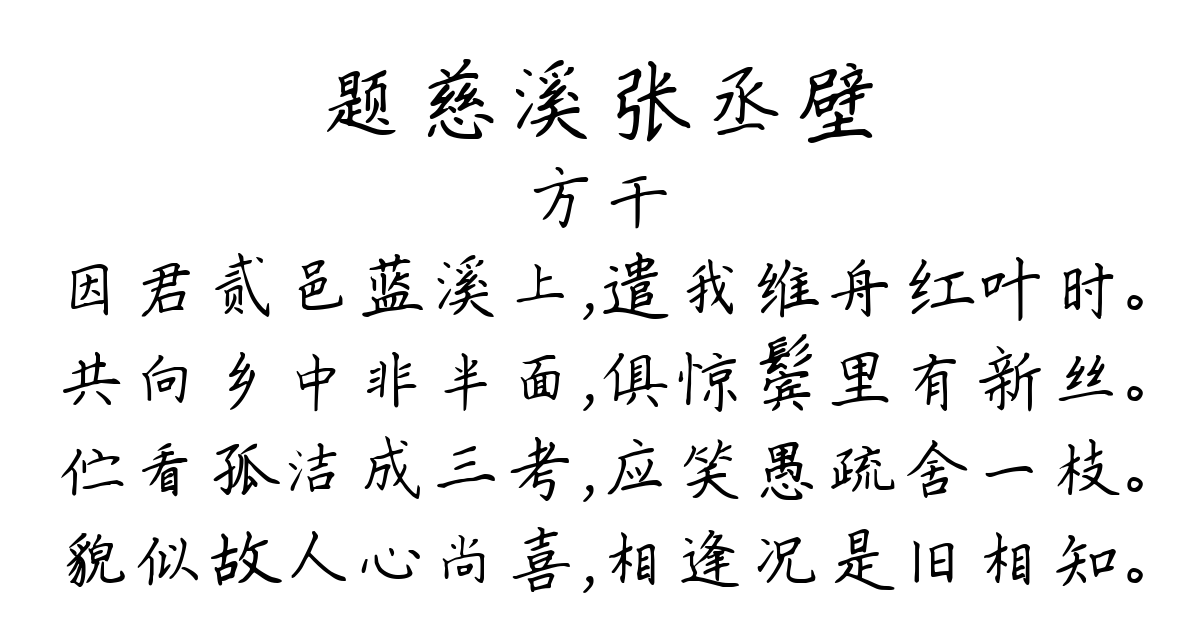 题慈溪张丞壁
方干
因君贰邑蓝溪上,遣我维舟红叶时。
共向乡中非半面,俱惊鬓里有新丝。
伫看孤洁成三考,应笑愚疏舍一枝。
貌似故人心尚喜,相逢况是旧相知。